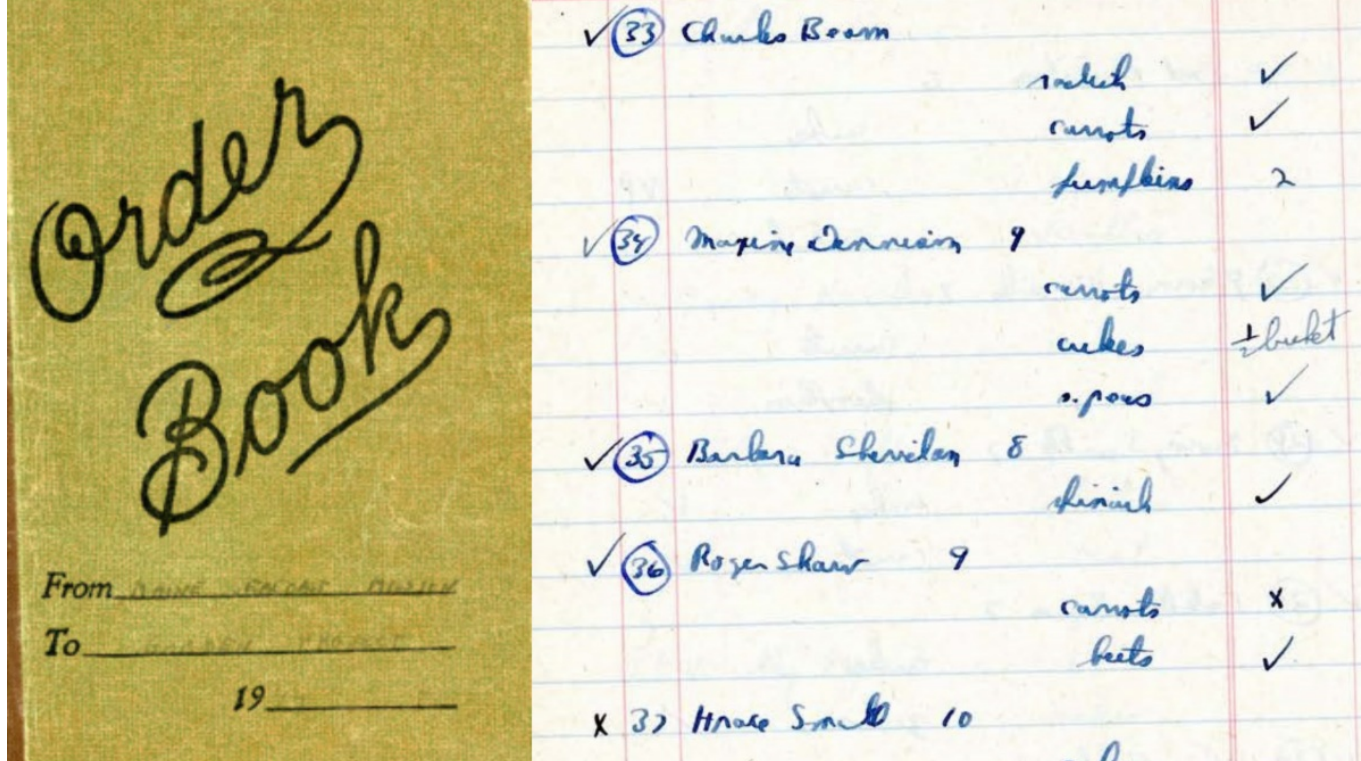 Order
Book
From
To
19
✓ 33 Charles Beam
radish ✓
carrots ✓
pumpkins 2
✓ 34 Maxine Dennison 9
carrots ✓
cukes ½ bucket
s. peas ✓
✓ 35 Barbara Sheridan 8
spinach ✓
✓ 36 Roger Shaw 9
carrots x
beets ✓
x 37 Horace Small 10